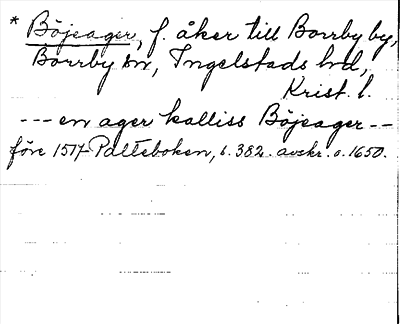 * Böjeager, f. åker till Borrby by,
Borrby sn, Ingelstads hd,
Krist. l.
--- en ager kalliss Böjeager --
före 1517 Palteboken, s. 382. avskr. o. 1650.